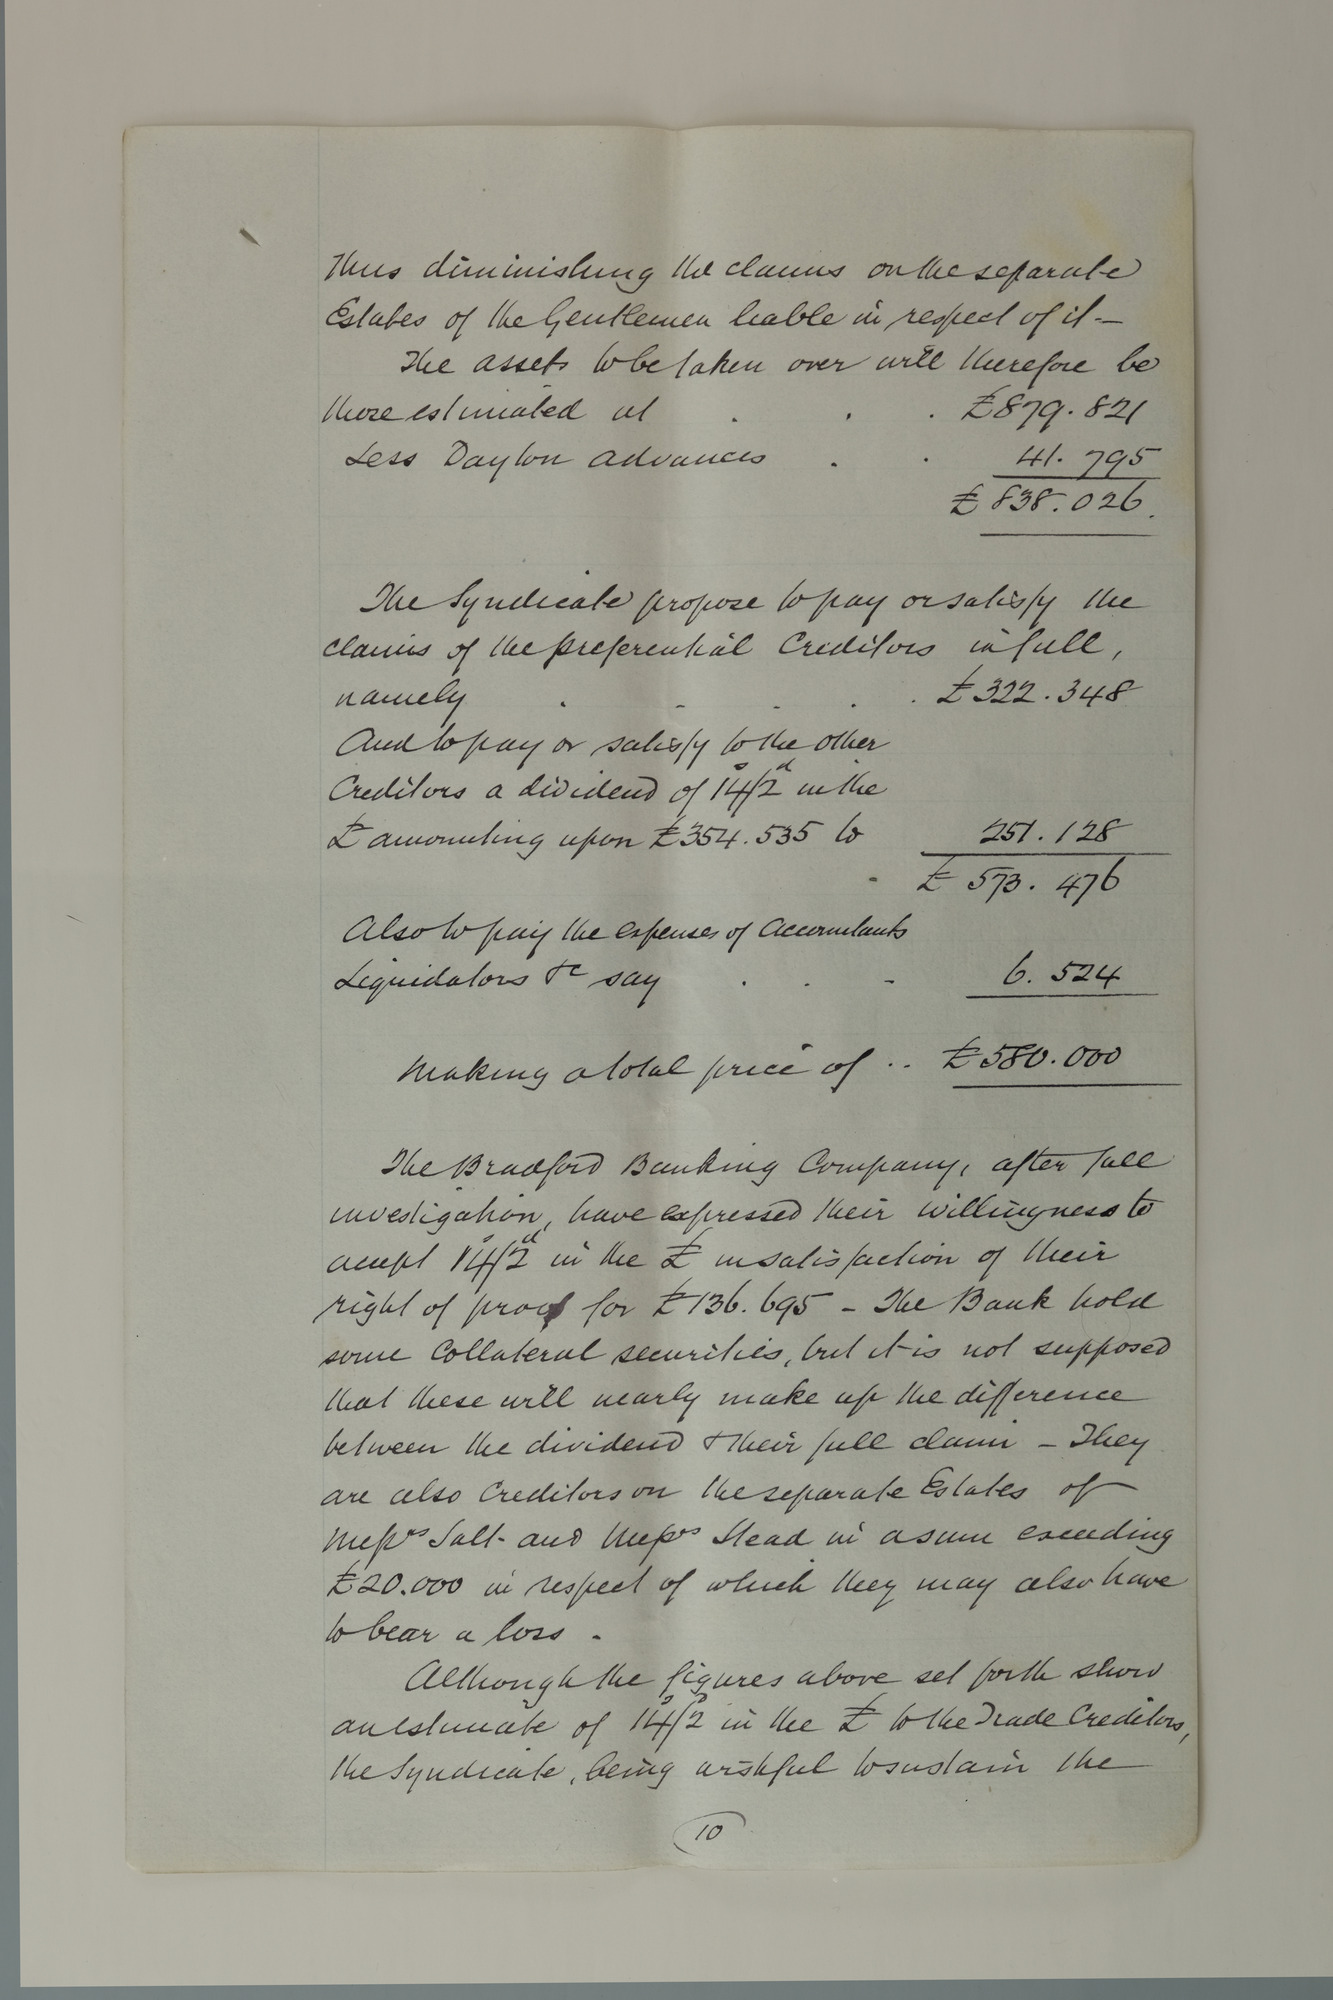 thus diminishing the claims on the separate
Estates of the Gentlemen liable in respect of it –
The assets to be taken over will therefore be
those estimated at . . . £879.821
Less Dayton advances . . 41.795
£838.026.
The Syndicate propose to pay or satisfy the
claims of the preferential Creditors in full,
namely . . . . . £322.348
And to pay or satisfy to the other
Creditors a dividend of 14s/2d in the
£ amounting upon £354.535 to 251.128
- £573.476
Also to pay the expenses of Accountants
Liquidators &c say . . - 6.524
Making a total price of .. £580.000
The Bradford Banking Company, after full
investigation, have expressed their willingness to
accept 14s/2d in the £ in satisfaction of their
right of proof for £136.695 – The Bank hold
some Collateral securities, but it is not supposed
that these will nearly make up the difference
between the dividend & their full claim – They
are also Creditors on the separate Estates of
Messrs Salt and Messrs Stead in a sum exceeding
£20.000 in respect of which they may also have
to bear a loss -
Although the figures above set forth show
an estimate of 14s/2 in the £ to the Trade Creditors,
the Syndicate, being wishful to sustain the
10